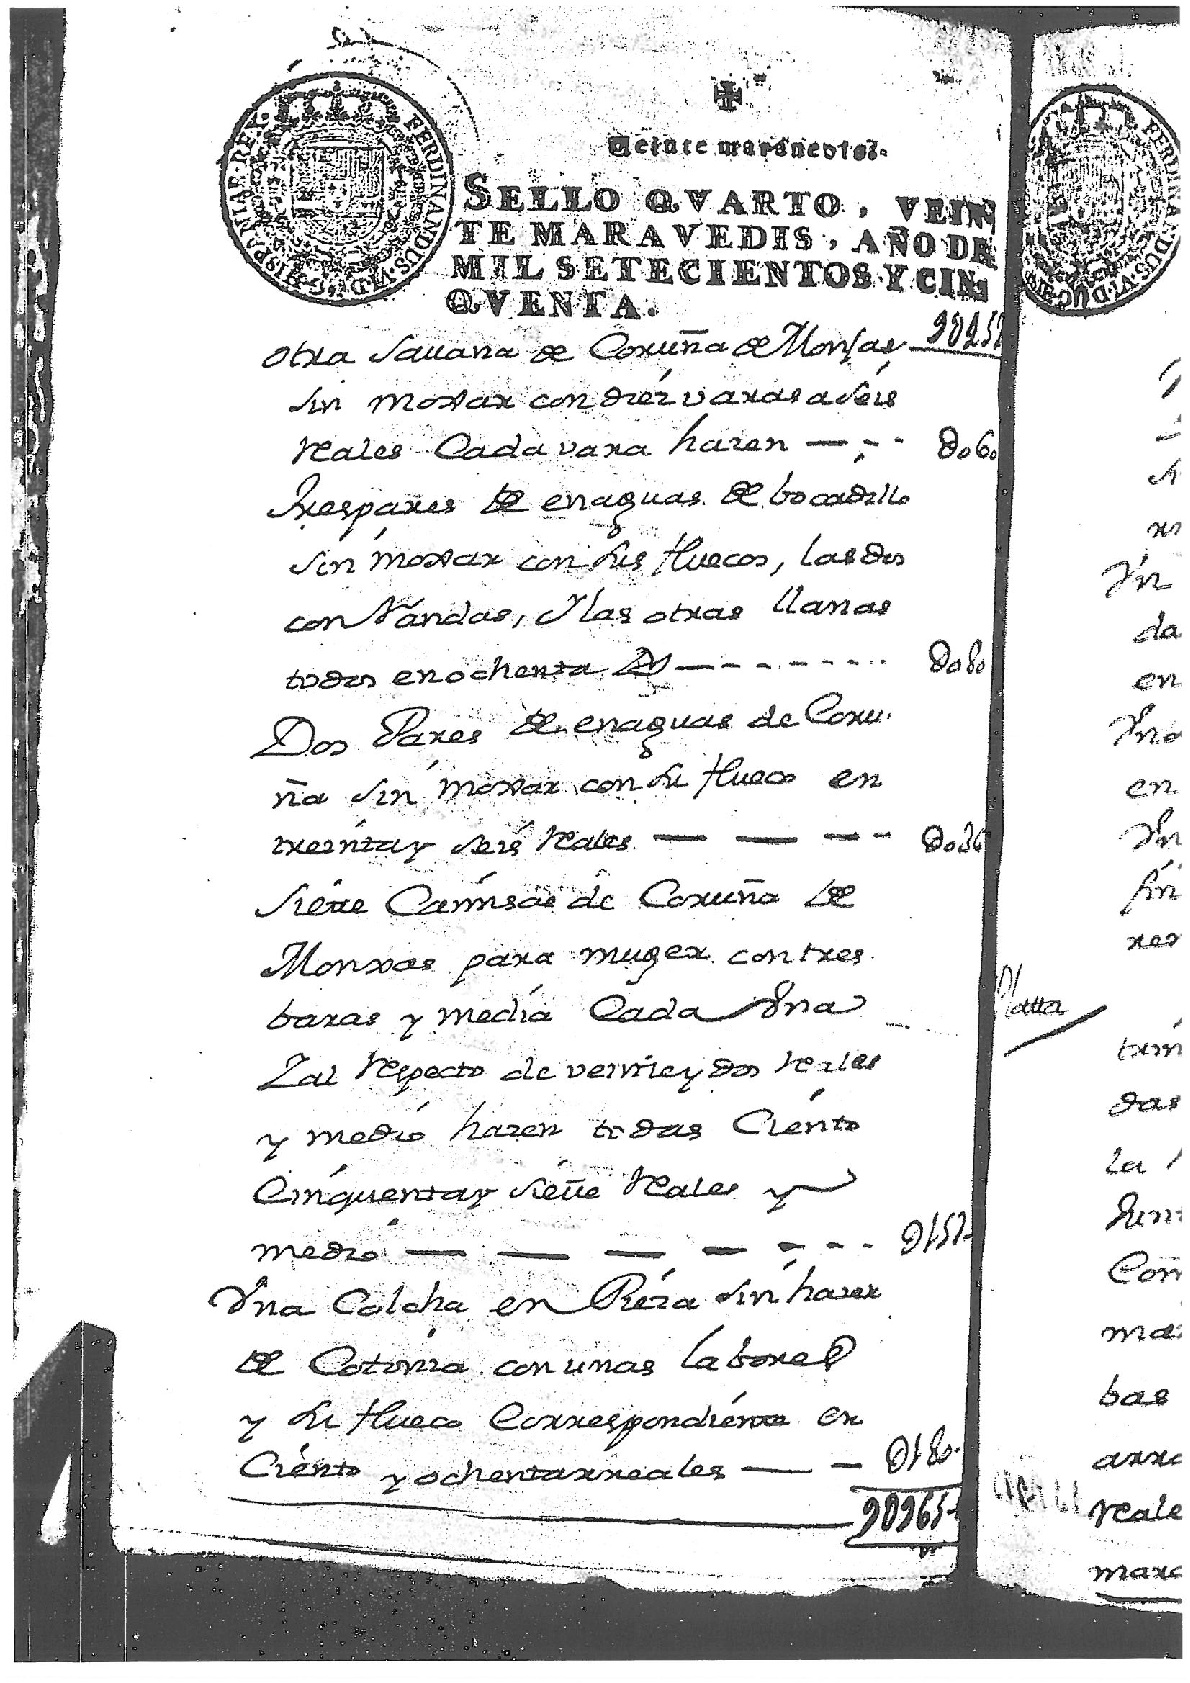 HISPANIAR. REX. FERDINANDUS. VI. D. G.
Veinte maravedis.
SELLO QVARTO, VEIN
TE MARAVEDIS, AÑO DE
MIL SETECIENTOS Y CIN
QVENTA.
otra Savana de Coruña de Monjas
sin mojar con diez varas a seis
reales Cada vara hazen — 0060
Tres pares de enaguas de bocadillo
sin mojar con sus Huecos, las dos
con Vandas, y las otras llanas
todos en ochenta Rs — 0080
Dos Pares de enaguas de Coru
ña sin mojar con su Hueco en
treinta y seis reales — 0036
Siete Camisas de Coruña de
Monxas para muger con tres
baras y media Cada Vna
Y al respecto de veinte y dos reales
y medio hazen todas Ciento
Cinquenta y siete reales y
medio — 0157
Vna Colcha en Pieza sin hazer
de Cotonia con unas labores
y su Hueco Correspondiente en
Ciento y ochenta rreales — 0180
Platta
da
en
en
das
la
Com
bas
reale